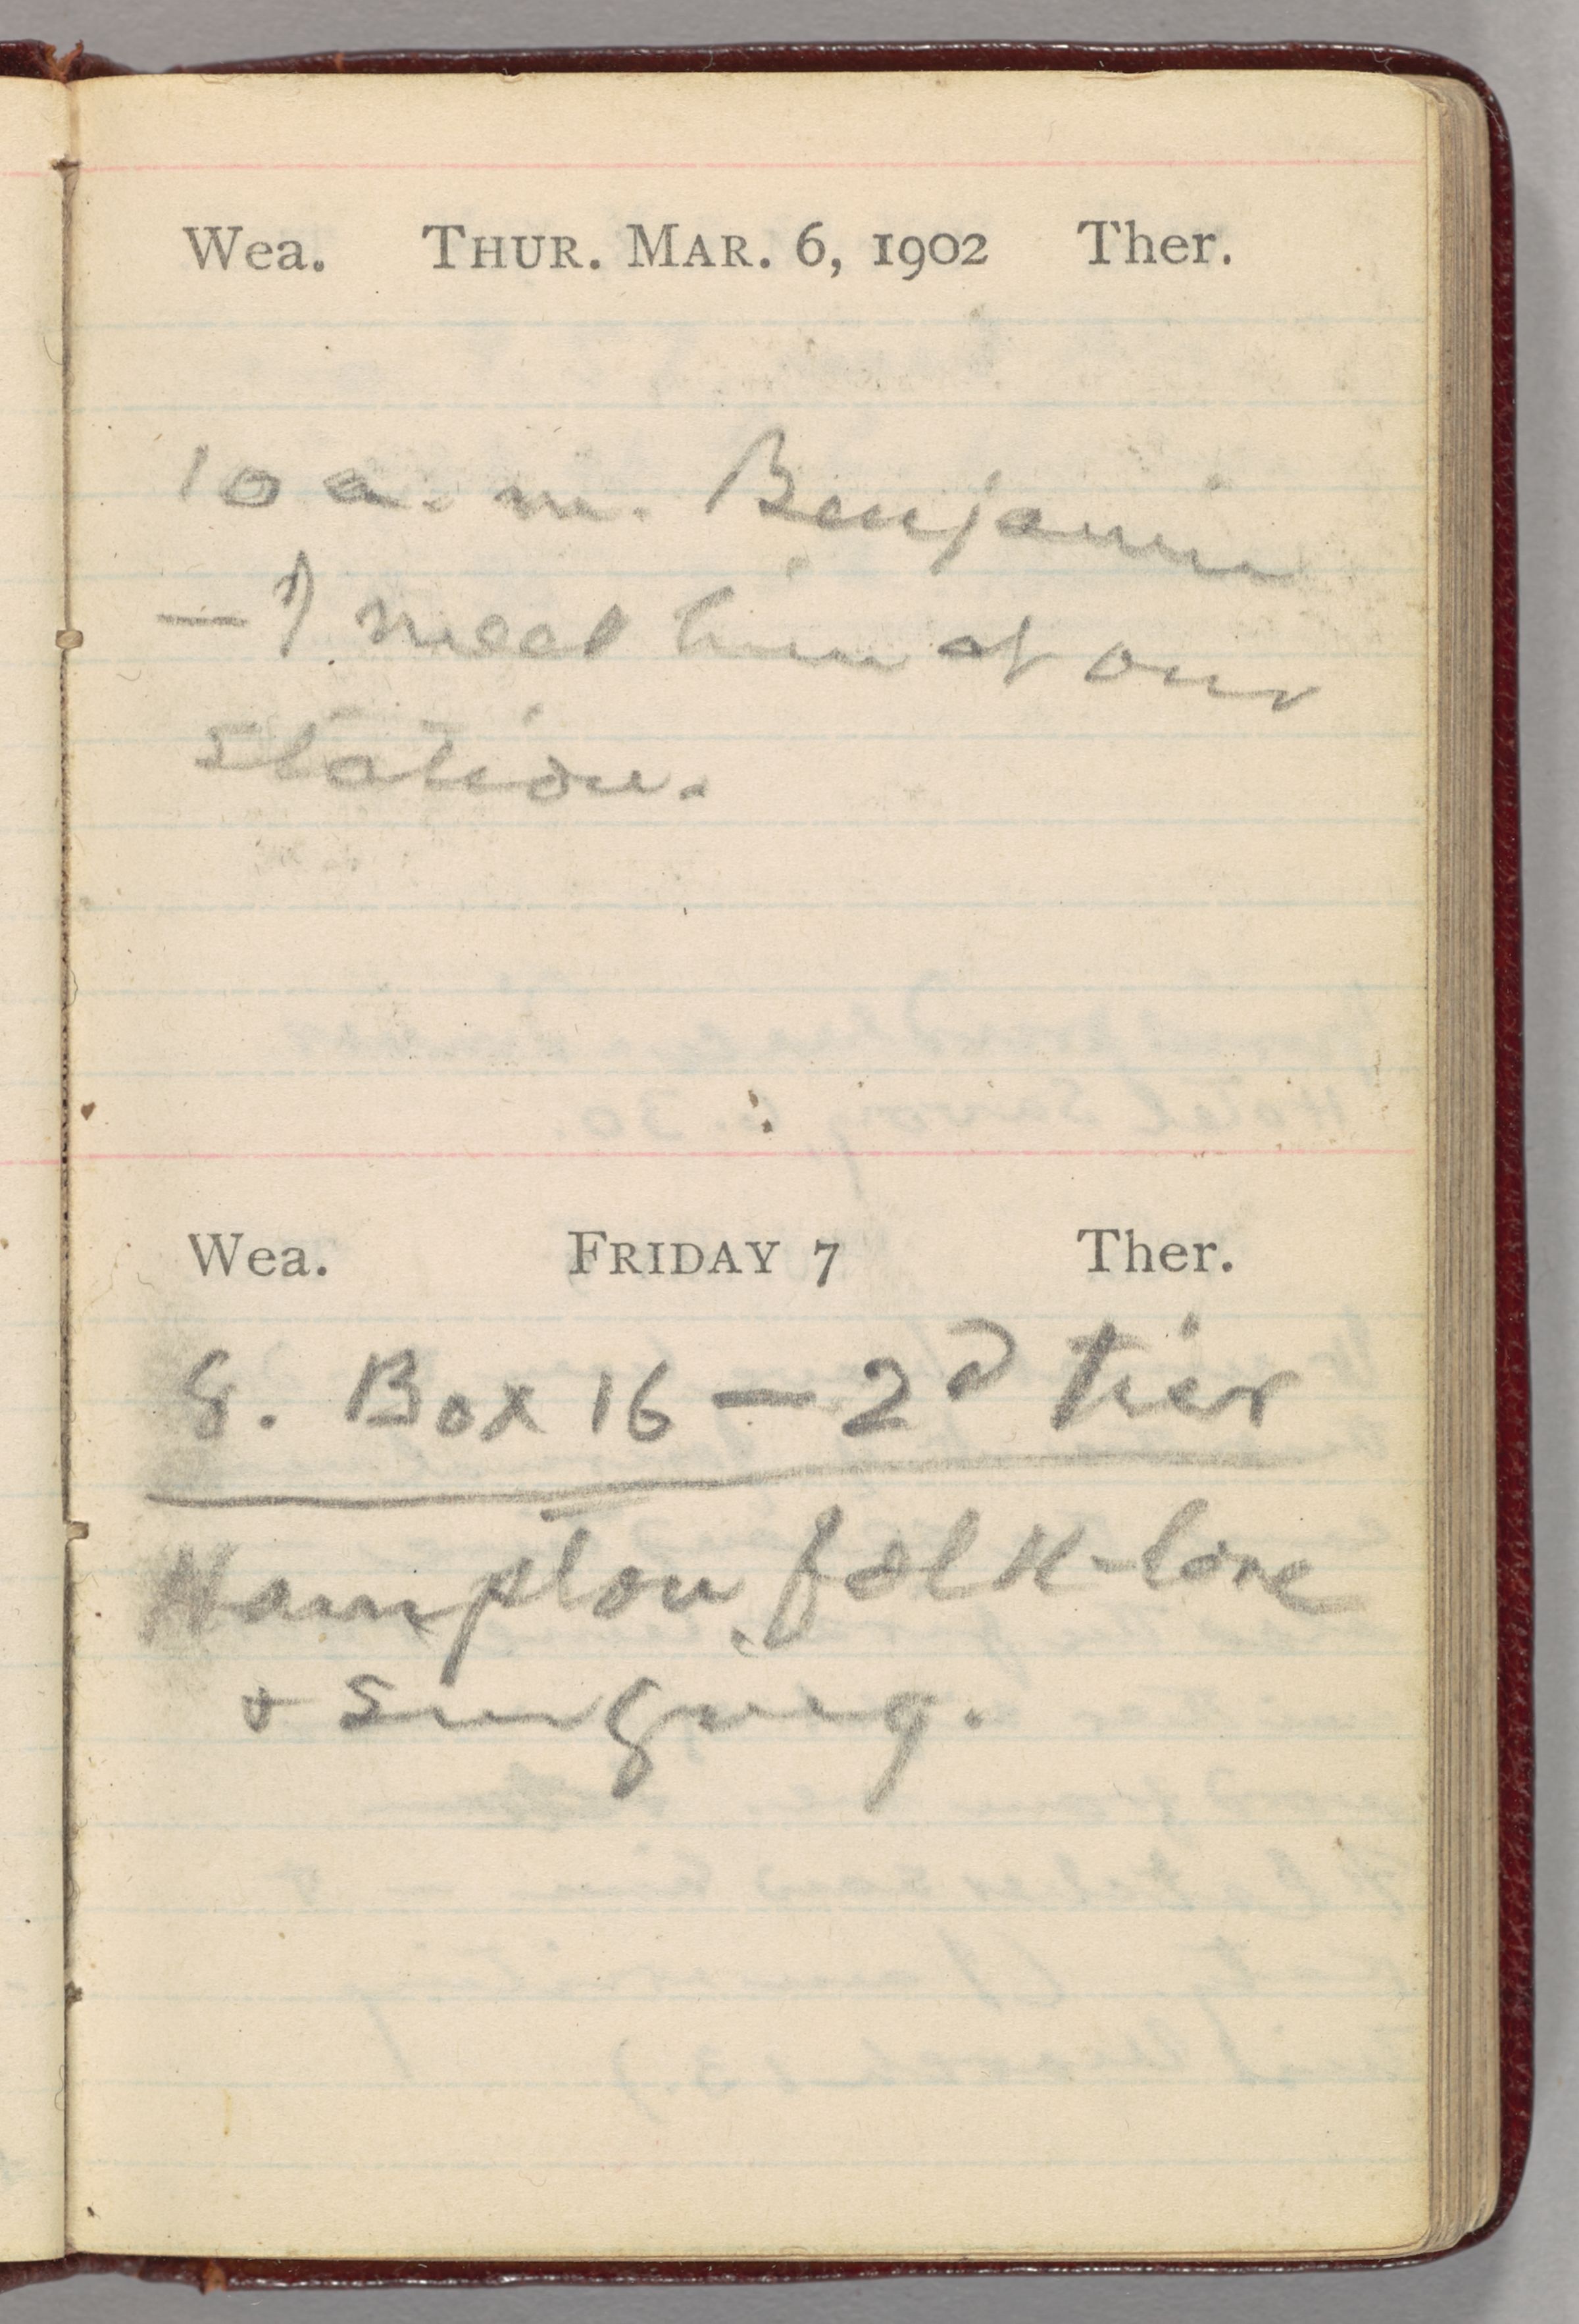 Wea. THUR. MAR. 6, 1902 Ther.
10 a. m. Benjamin
— I meet him at our
station.
Wea. FRIDAY 7 Ther.
8. Box 16 — 2d tier
Hampton folk-lore
& singing.